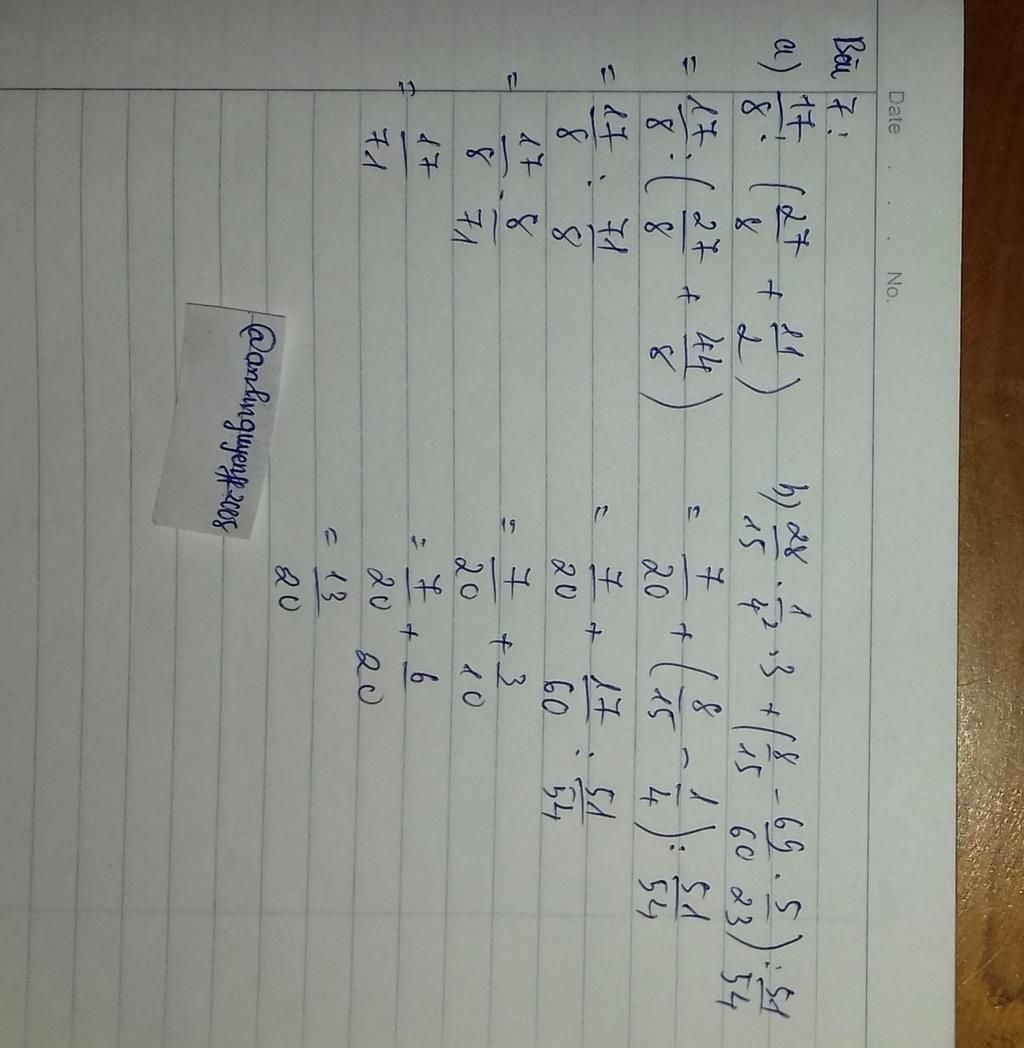 Date . . . No.
Bài 7:
a) 17/8 : (27/8 + 11/2)
= 17/8 : (27/8 + 44/8)
= 17/8 : 71/8
= 17/8 . 8/71
= 17/71
b) 28/15 . 1/4² . 3 + (8/15 - 69/60 . 5/23) : 51/54
= 7/20 + (8/15 - 1/4) : 51/54
= 7/20 + 17/60 : 51/54
= 7/20 + 3/10
= 7/20 + 6/20
= 13/20